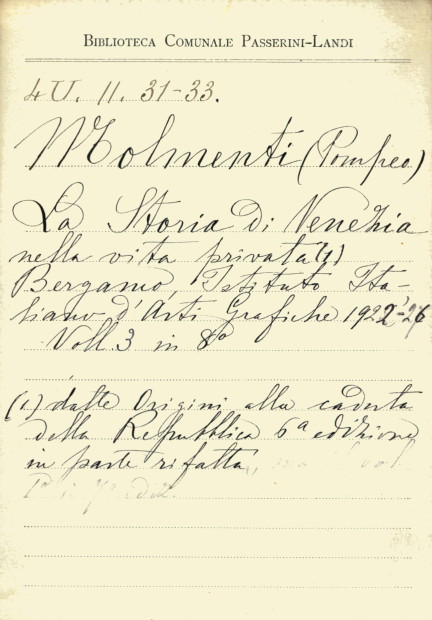 BIBLIOTECA COMUNALE PASSERINI-LANDI
4U. II. 31-33.
Molmenti (Pompeo)
La Storia di Venezia
nella vita privata (1)
Bergamo, Istituto Ita-
liano d'Arti Grafiche 1922-26
Voll. 3 in 8°
(1) dalle Origini alla caduta
della Repubblica 6ª edizione
in parte rifatta,